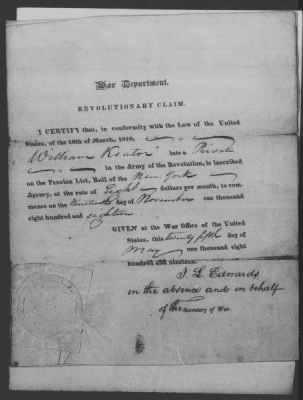 War Department.
REVOLUTIONARY CLAIM.
I CERTIFY that, in conformity with the Law of the United
States, of the 18th of March, 1818,
William Keator late a Private
in the Army of the Revolution, is inscribed
on the Pension List, Roll of the New York
Agency, at the rate of Eight dollars per month, to com-
mence on the Nineteenth day of November one thousand
eight hundred and eighteen
GIVEN at the War Office of the United
States, this twenty fifth day of
May one thousand eight
hundred and nineteen.
J. L. Edwards
in the absence and on behalf
of the Secretary of War.